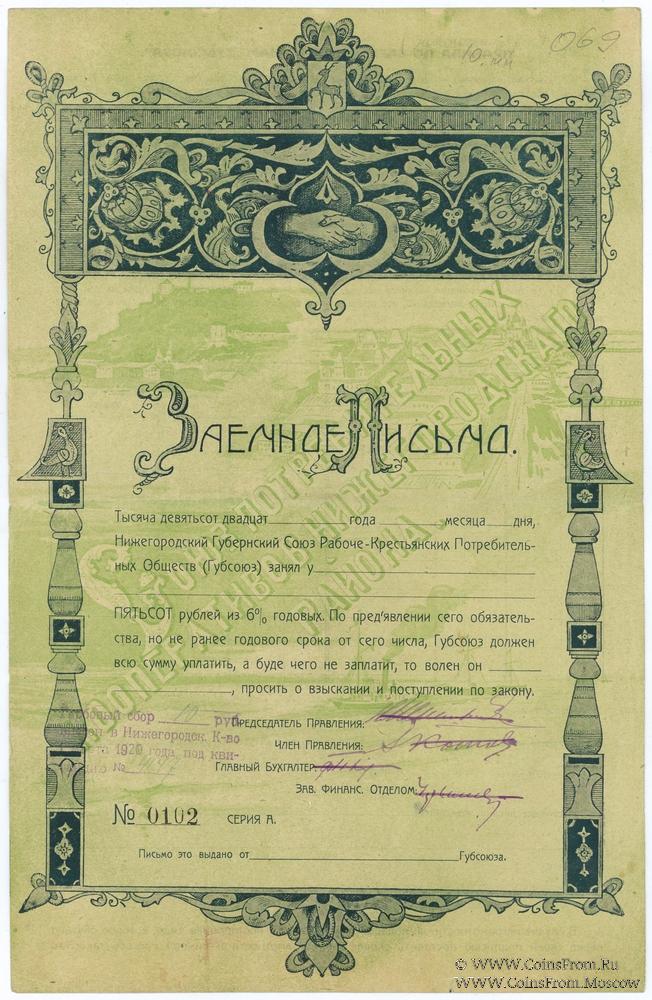 069
10.
Заемное Письмо.
Тысяча девятьсот двадцат года месяца дня,
Нижегородский Губернский Союз Рабоче-Крестьянских Потребитель-
ных Обществ (Губсоюз) занял у
ПЯТЬСОТ рублей из 6% годовых. По пред'явлении сего обязатель-
ства, но не ранее годового срока от сего числа, Губсоюз должен
всю сумму уплатить, а буде чего не заплатит, то волен он
, просить о взыскании и поступлении по закону.
Гербовый сбор 10 руб.
в Нижегородск. К-во
1920 года под кви-
№
Председатель Правления:
Член Правления:
Главный Бухгалтер
Зав. Финанс. Отделом:
№ 0102 СЕРИЯ А.
Письмо это выдано от Губсоюза.
© WWW.CoinsFrom.Ru
WWW.CoinsFrom.Moscow